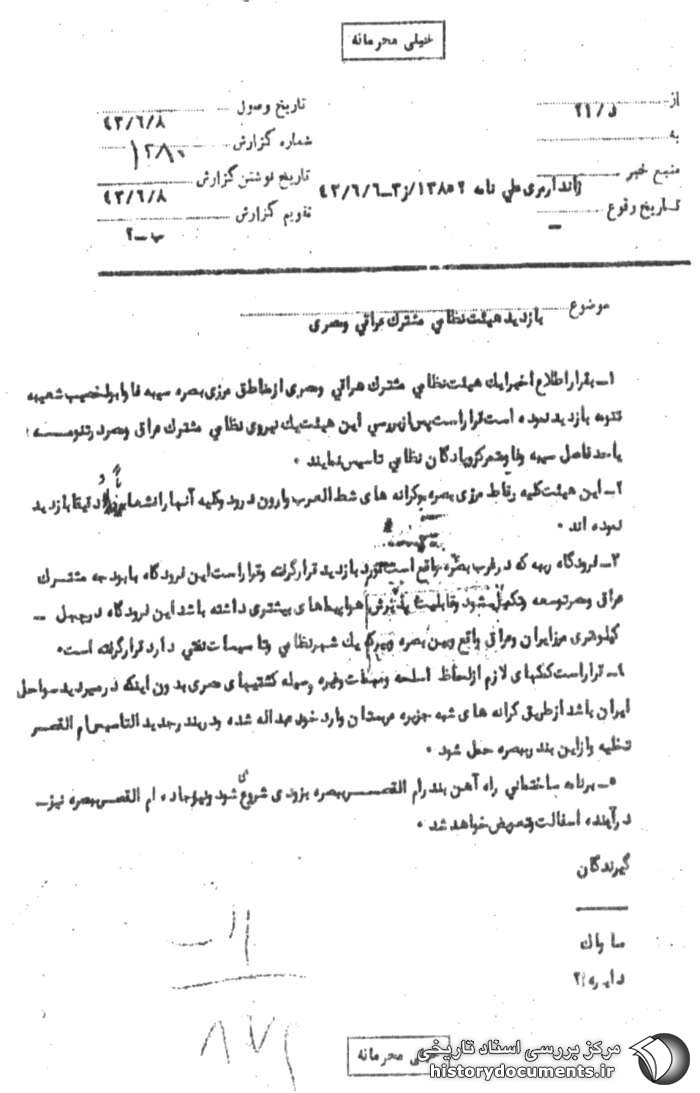 خیلی محرمانه
از
تاریخ وصول ۴۳/۶/۸
به
شماره گزارش ۱۲۸۰
منبع خبر ژاندارمری طی نامه
تاریخ نوشتن گزارش ۴۳/۶/۸
تاریخ وقوع –
تقویم گزارش ب-۲
موضوع بازدید هیئت نظامی مشترك عراقی ومصری
۱- بقرار اطلاع اخیرا یك هیئت نظامی مشترك عراقی ومصری از مناطق مرزی بصره سیبه فاو ابولخصیب شعیبه
تنومه بازدید نموده است قرار است پس از بررسی این هیئت یك نیروی نظامی مشترك عراق ومصر در تنومـــه
یا حد فاصل سیبه وفاو متمرکز وپادگان نظامی تاسیس نمایند ۰
۲- این هیئت کلیه نقاط مرزی بصره وکرانه های شط العرب واروند رود وکلیه آنها را دقیقا بازدید
نموده اند ۰
۳- فرودگاه ربه که در غرب بصره واقع است مورد بازدید قرار گرفته وقرار است این فرودگاه با بودجه مشترك
عراق ومصر توسعه وتکمیل شود وقابلیت پذیرش هواپیماهای بیشتری داشته باشد این فرودگاه در چهل –
کیلومتری مرز ایران وعراق واقع وبین بصره یك شهر نظامی وتاسیسات نفتی دارد قرار گرفته است۰
۴- قرار است کمکهای لازم از لحاظ اسلحه ومهمات وغیره وسیله کشتیهای مصری بدون اینکه در مسیر دید سواحل
ایران باشد از طریق کرانه های شبه جزیره عربستان وارد خور عبداله شده ودر بندر جدید التاسیس ام القصر
تخلیه واز این بندر ببصره حمل شود ۰
۵- برنامه ساختمانی راه آهن بندر ام القصـــر ببصره بزودی شروع شود ونیز جاده ام القصر ببصره نیز–
در آینده اسفالت وتعویض خواهد شد ۰
گیرندگان
ساواك
دایره ۲
۸۷۹
خیلی محرمانه
مرکز بررسی اسناد تاریخی
historydocuments.ir